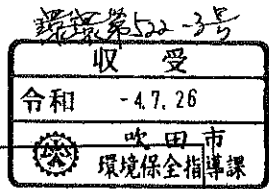 環環第522-3号
収受
令和 -4.7.26
吹田市
環境保全指導課